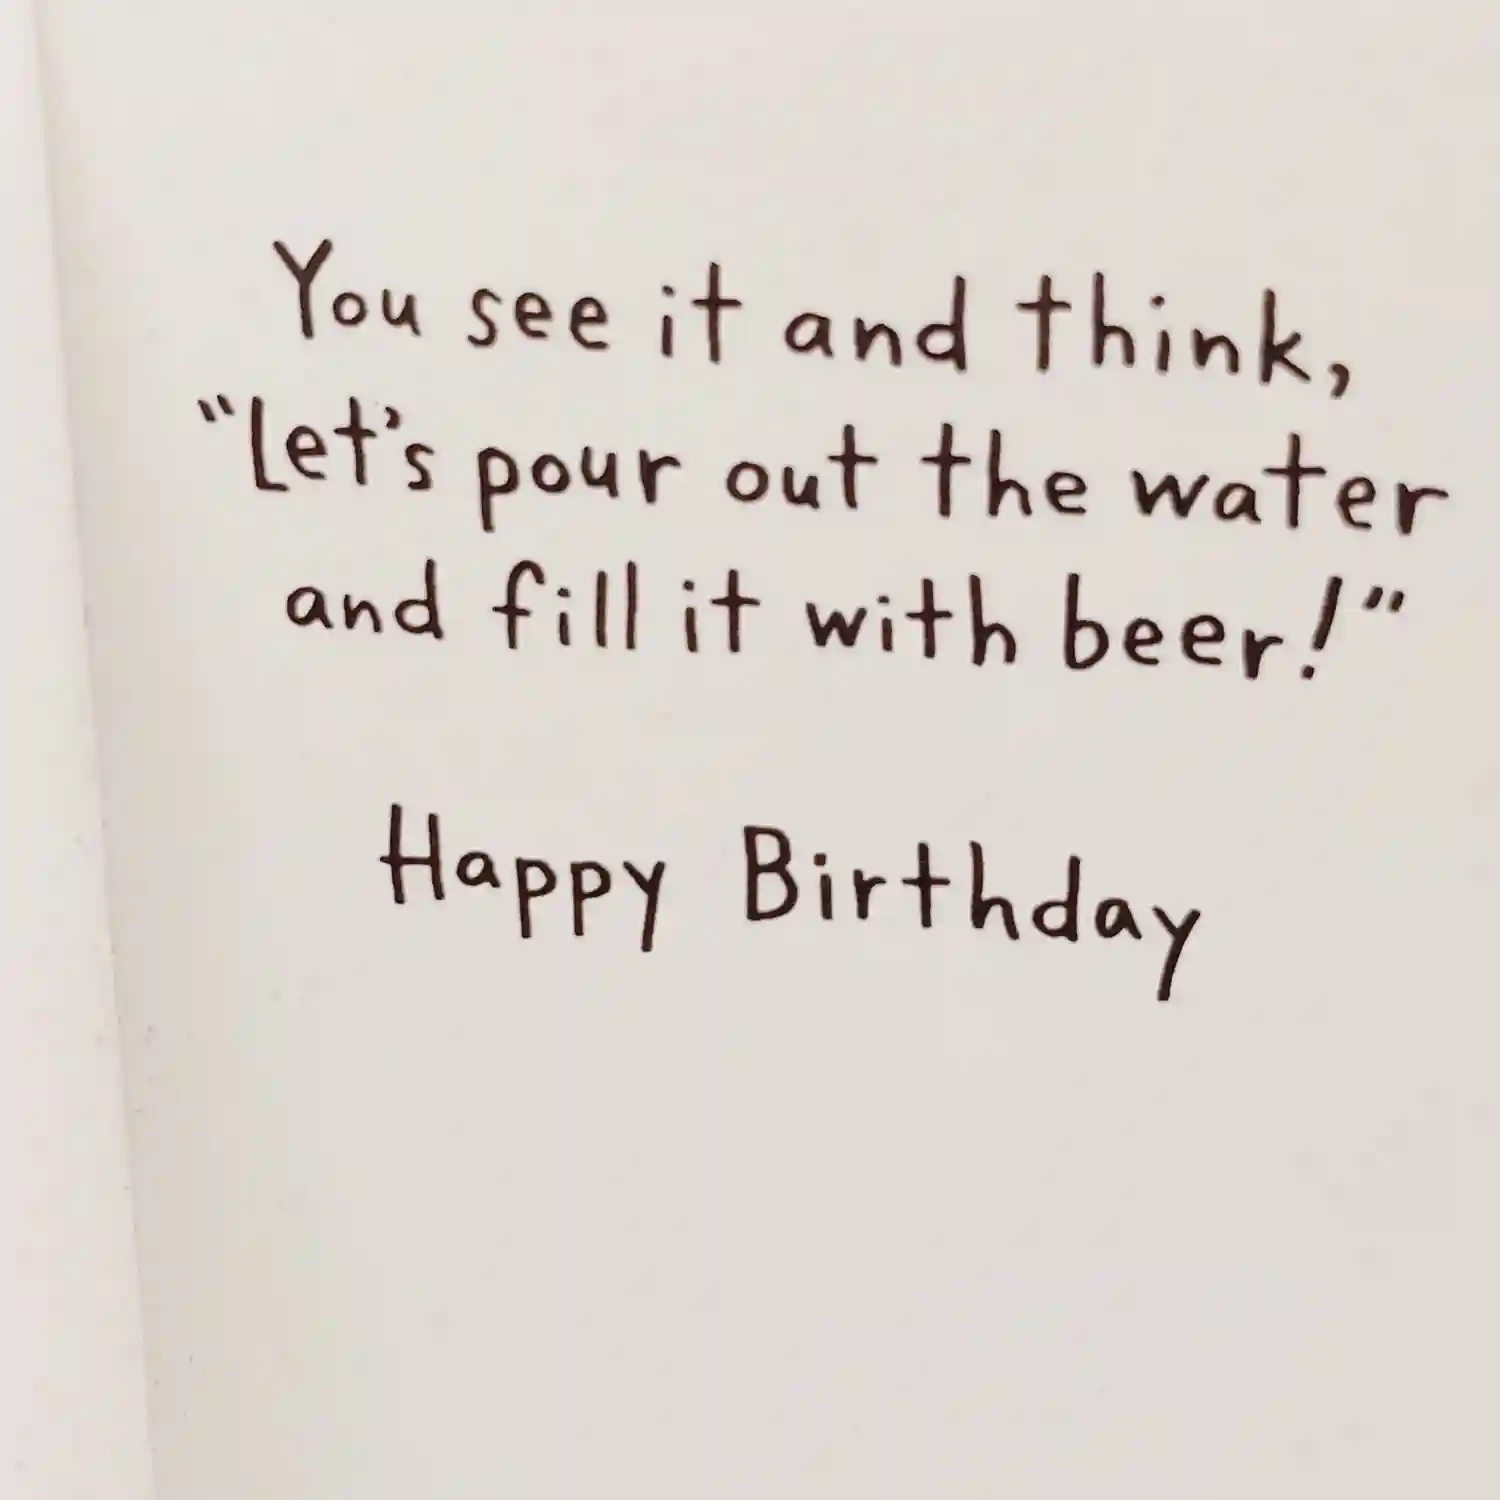 You see it and think,
“Let’s pour out the water
and fill it with beer!”
Happy Birthday